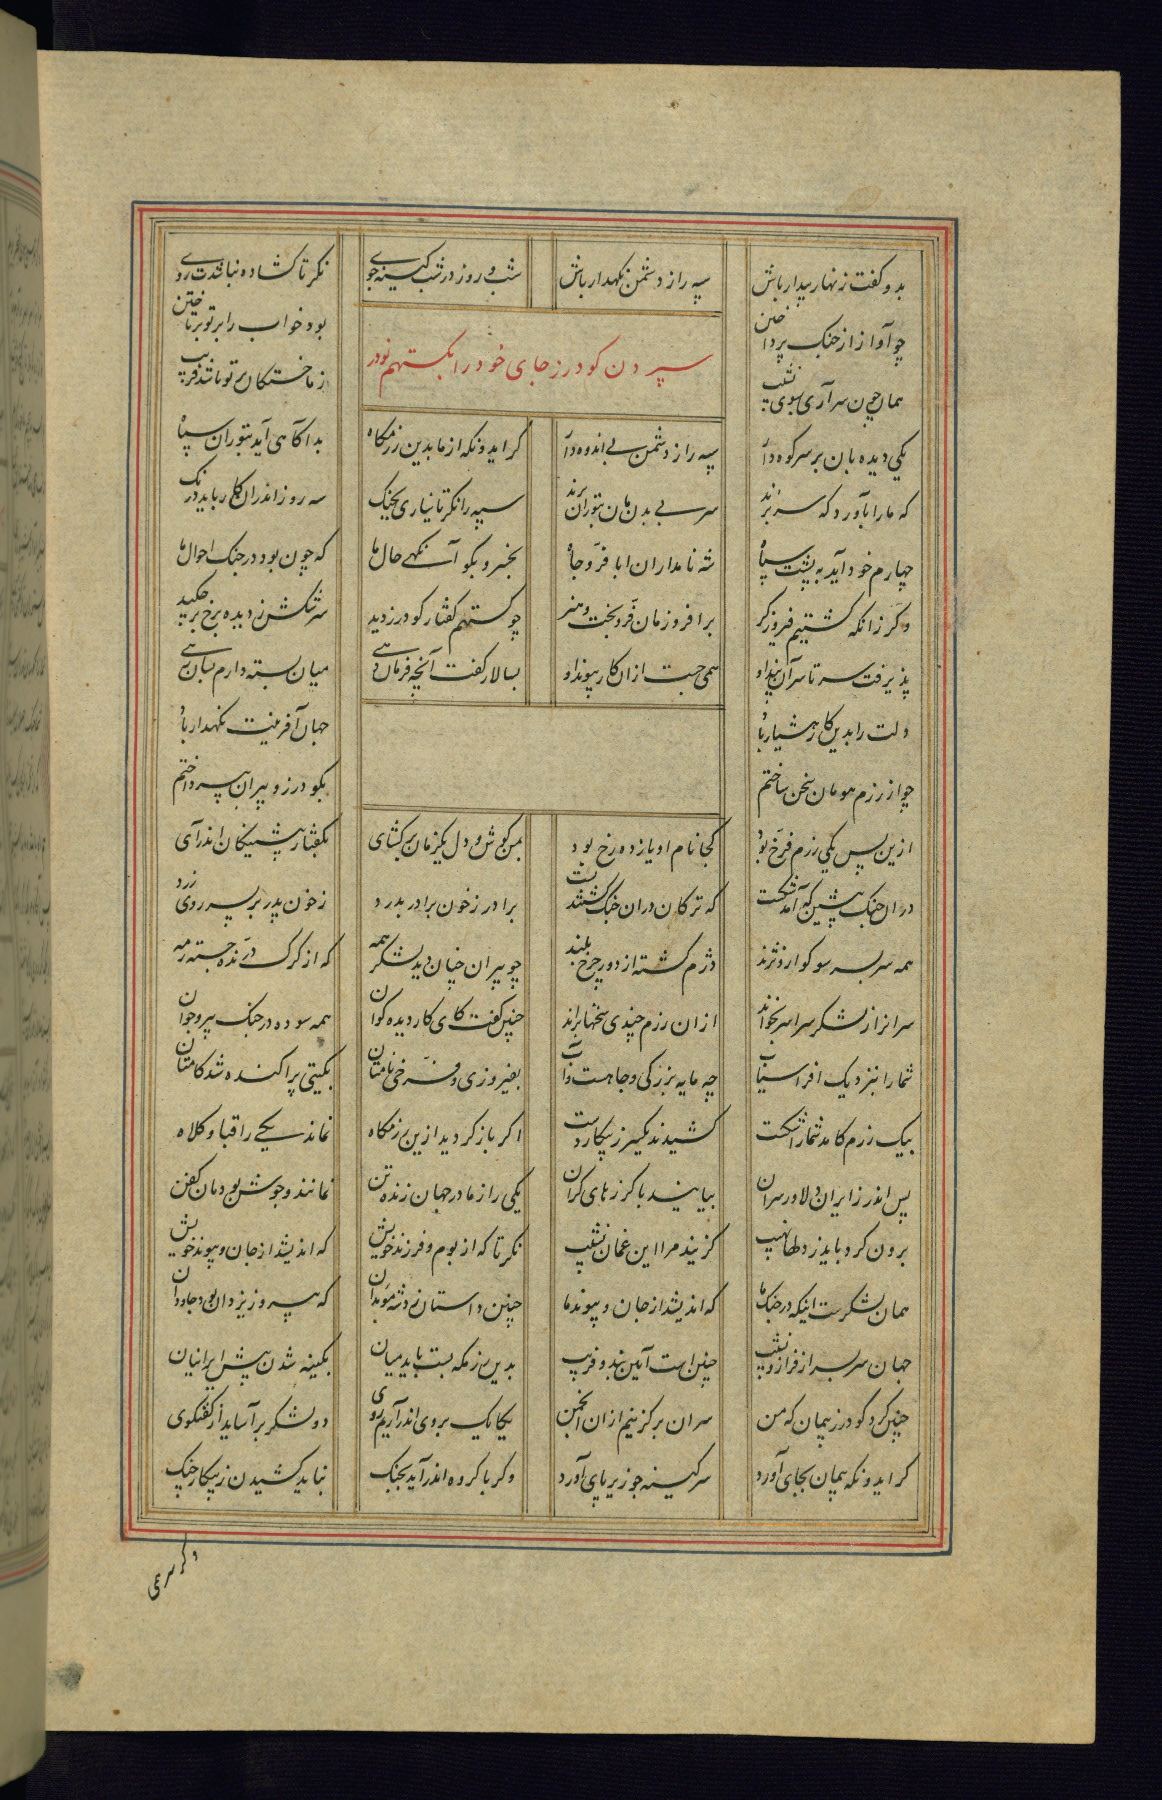 بدو گفت زنهار بیدار باش سپه را ز دشمن نگهدار باش شب و روز در شب کینه جوی نگر تا گشاده نباشدت روی
چو آواز از جنگ پرداختن بود خواب را بر تو بر تاختن
سپردن گودرز جای خود را بگستهم نوذر
همان چون سر آری بسوی نشیب ز ماخستگان بر تو باشد فریب
یکی دیده بان بر سر کوه دار سپه را ز دشمن بی اندوه دار گر ایدونکه از ما بدین رزمگاه بد آگاهی آید بتوران سپاه
که ما را بآوردگه سر برند سر بی بدن مان بتوران برند سپه را نگر تا نیاری بجنگ سه روز اندران کار باید درنگ
چهارم خود آید به پشت سپاه شه نامداران ابا فر و جاه بخسرو بگو آنگهی حال ما که چون بود در جنگ احوال ما
وگر زانکه گشتیم فیروزگر برافروز مان فر و بخت و هنر چو گستهم گفتار گودرز دید سرشکش ز دیده برخ بر چکید
پذیرفت سر تا سر آن پند او همی جست ازان کار پیوند او بسالار گفت آنچه فرمان دهی میان بسته دارم بسان رهی
دلت را بدین کار هشیار باد جهان آفرینت نگهدار باد
چو از رزم هومان سخن ساختم بگودرز و پیران بپرداختم
ازین پس یکی رزم فرخ بود کجا نام او یازده رخ بود بمن گوش و دل یکزمان برگشای بگفتار پیشینگان اندر آی
دران جنگ پیشین که آمد شکست که ترکان دران جنگ گشتند پست برادر ز خون برادر بدرد ز خون پدر بر پسر روی زرد
همه سر بسر سوکوار و نژند دژم گشته از دور چرخ بلند چو پیران چنان دید لشکر همه که از گرگ درنده جسته رمه
سران را ز لشکر سراسر بخواند ازان رزم چندی سخنها براند چنین گفت کای کار دیده گوان همه سوده در جنگ پیر و جوان
شما را بنزدیک افراسیاب چه مایه بزرگی و جاهست و آب بفیروزی و فرخی نامتان بگیتی پراکنده شد کامتان
بیک رزم کامد شما را شکست کشیدند یکسر ز پیکار دست اگر باز گردید ازین رزمگاه نماند یکی را قبا و کلاه
پس اندر ز ایران دلاور سران بیایند با گرزهای گران یکی را ز ما در جهان زنده تن نمانند و جوشن بود مان کفن
برون کرد باید ز دلها نهیب گزیدم مرا این غمان نشیب نگر تا که از بوم و فرزند خویش که اندیشد از جان و پیوند خویش
همان لشکرست اینکه در جنگ ما که اندیشد از جان و پیوند ما چنین داستان زد شه موبدان که پیروز یزدان بود جاودان
جهان سربسر از فراز و نشیب چنین است آیین بند و فریب بدین رزمگه بست باید میان بکینه شدن پیش ایرانیان
چنین کرد گودرز پیمان که من سران برگزینم ازان انجمن یکایک بروی اندر آریم روی دو لشکر برآساید از گفتگوی
گر ایدونکه پیمان بجای آورد سر کینه جو زیر پای آورد وگر با گروه اندر آید بجنگ نباید کشیدن ز پیکار چنگ